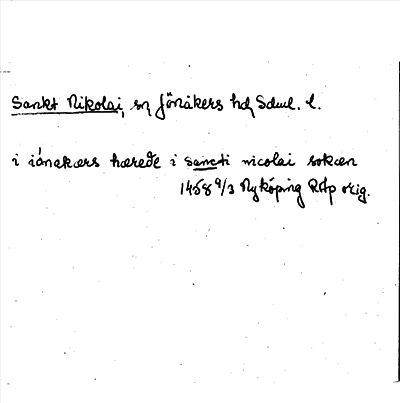 Sankt Nikolai, sn, Jönåkers hd, Södml. l.
i iónakærs hæreðe i sancti nicolai sokæn
1458 9/3 Nyköping RAp orig.